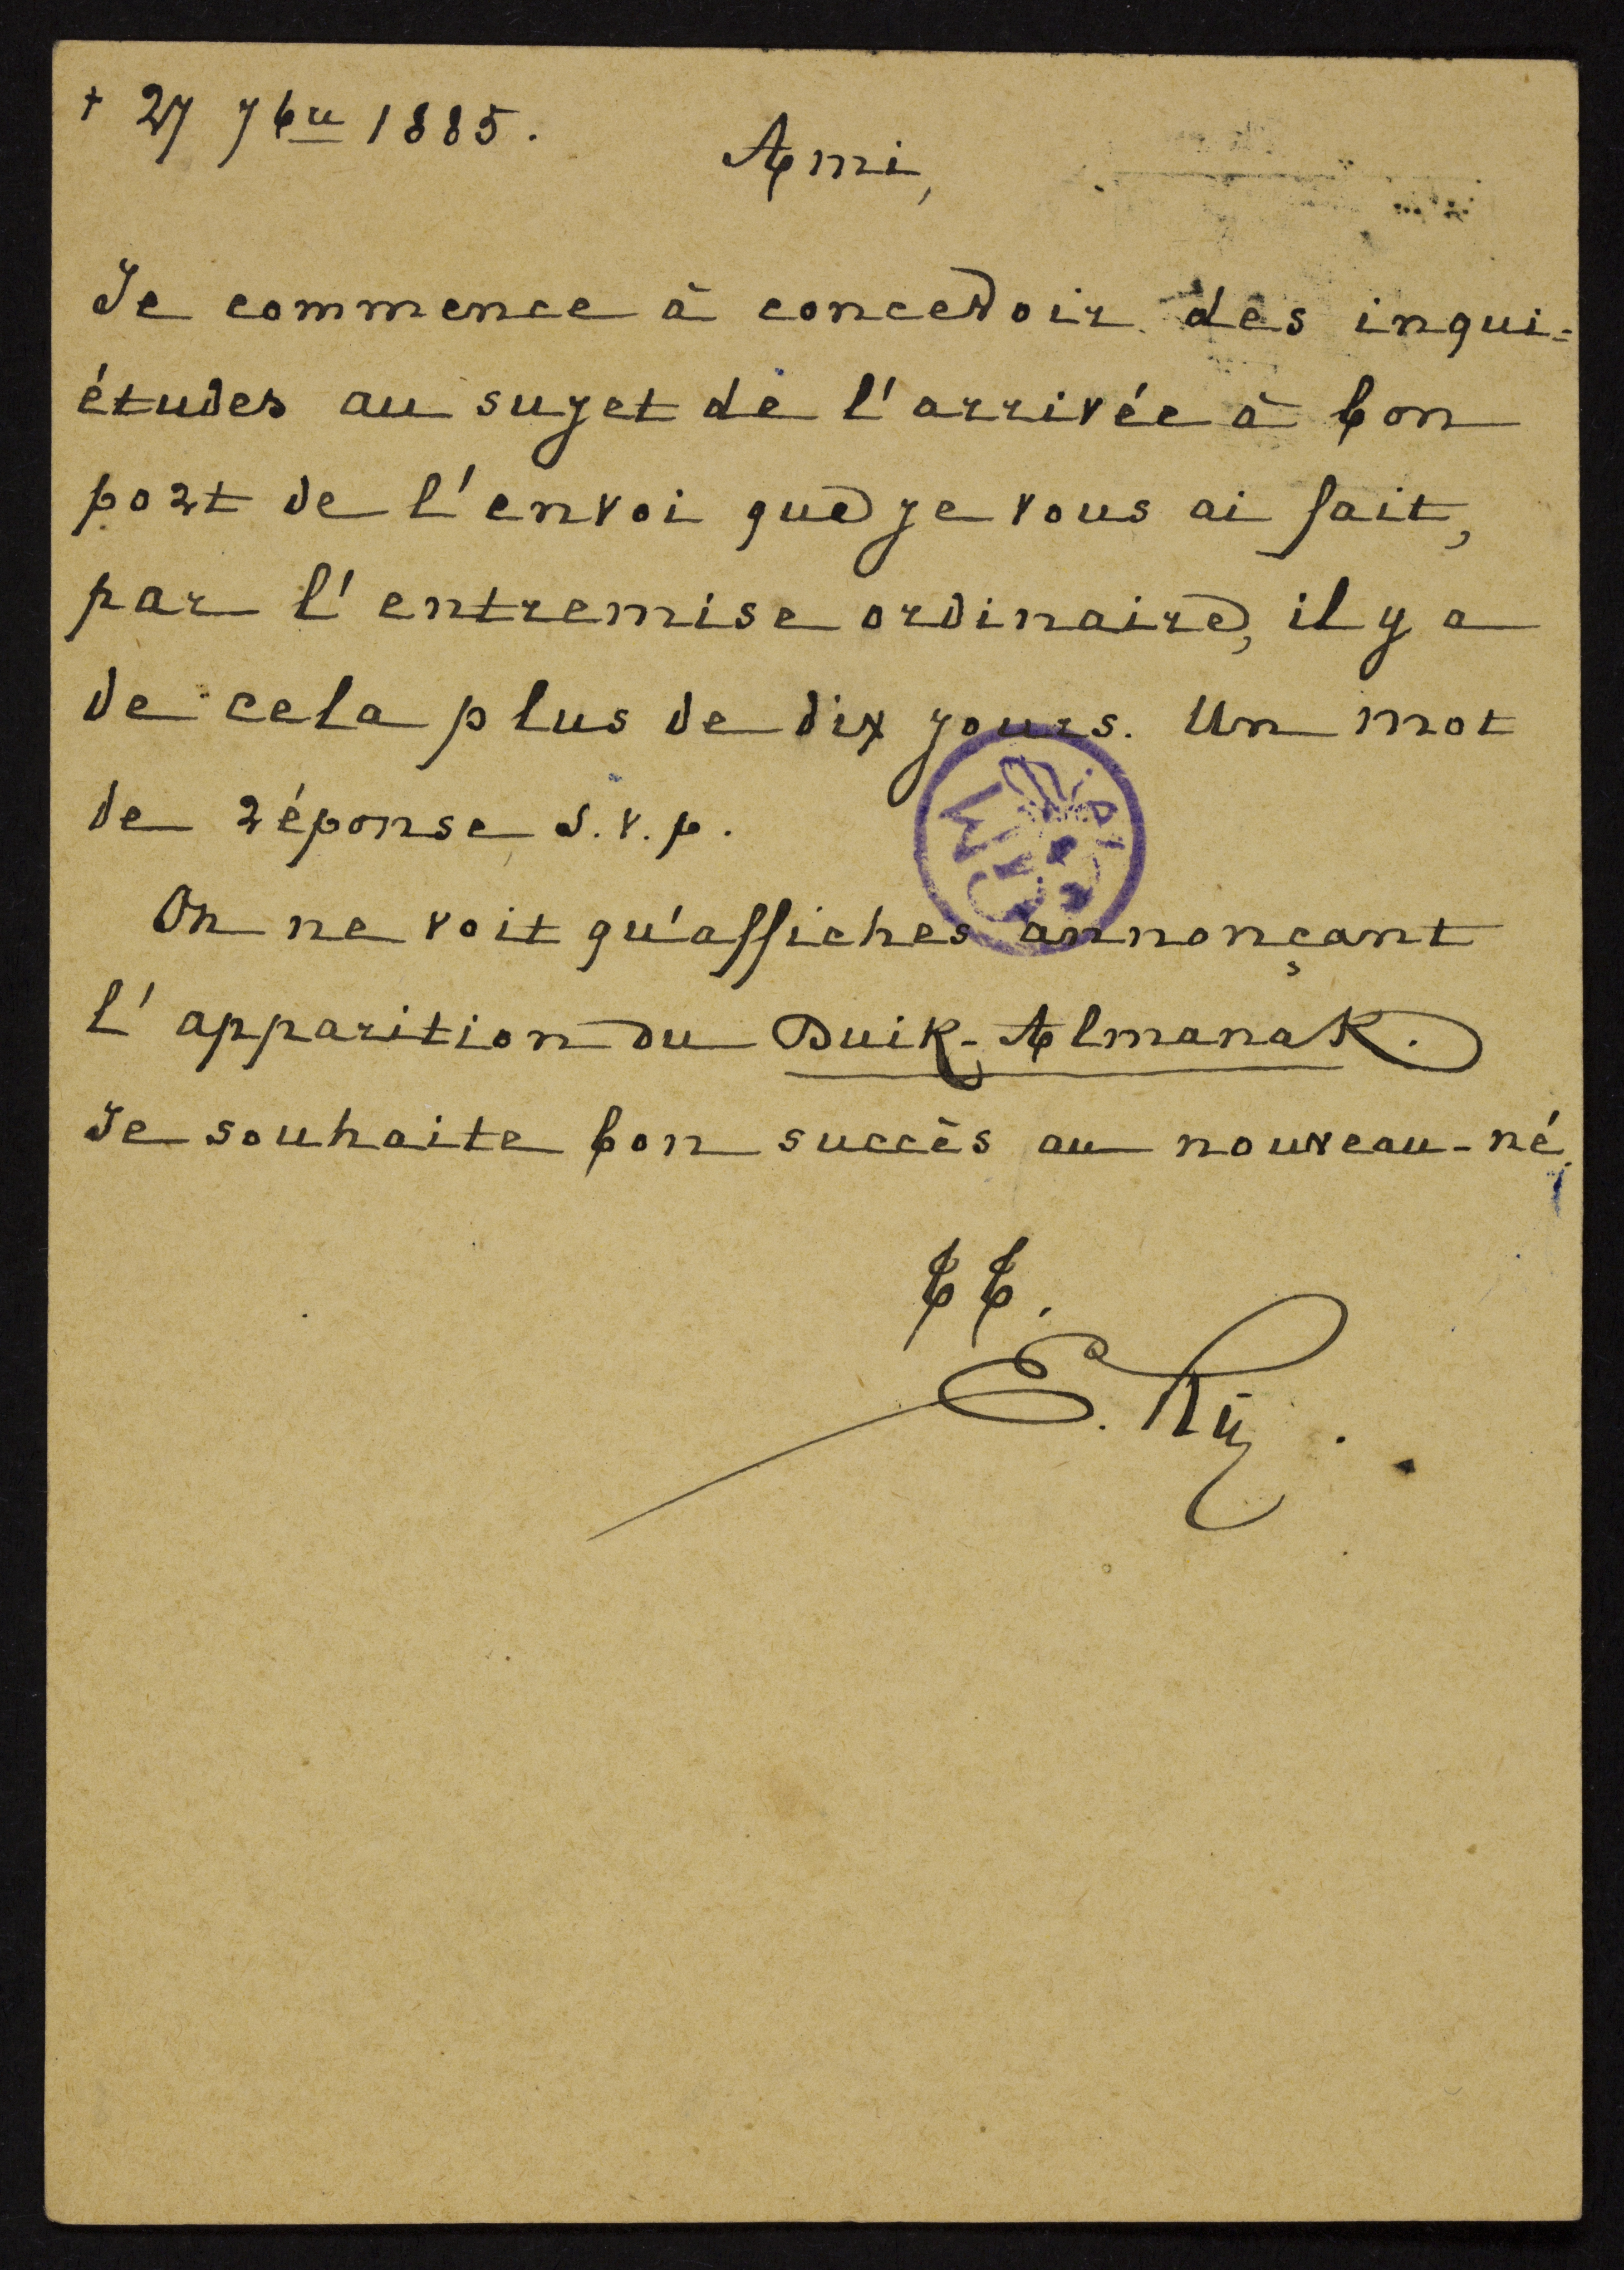 + 27 7bre 1885.
Ami,
Je commence à concevoir des inqui-
études au sujet de l'arrivée à bon
port de l'envoi que je vous ai fait,
par l'entremise ordinaire, il y a
de cela plus de dix jours. Un mot
de réponse s.v.p.
On ne voit qu'affiches annonçant
l'apparition du Duik-Almanak.
Je souhaite bon succès au nouveau-né.
tt.
E. Rÿ.